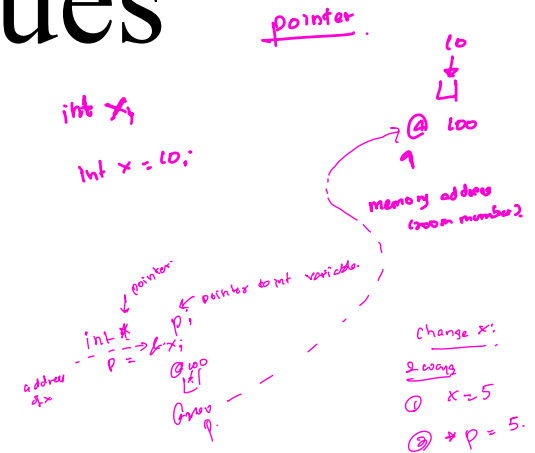 ues
pointer.
10
int x;
@ 100
int x = 10;
memory address
(room number)
pointer
pointer to int variable.
int *
p;
p = &x;
address
of x
@
p.
Change x:
2 ways
① x = 5
② * p = 5.